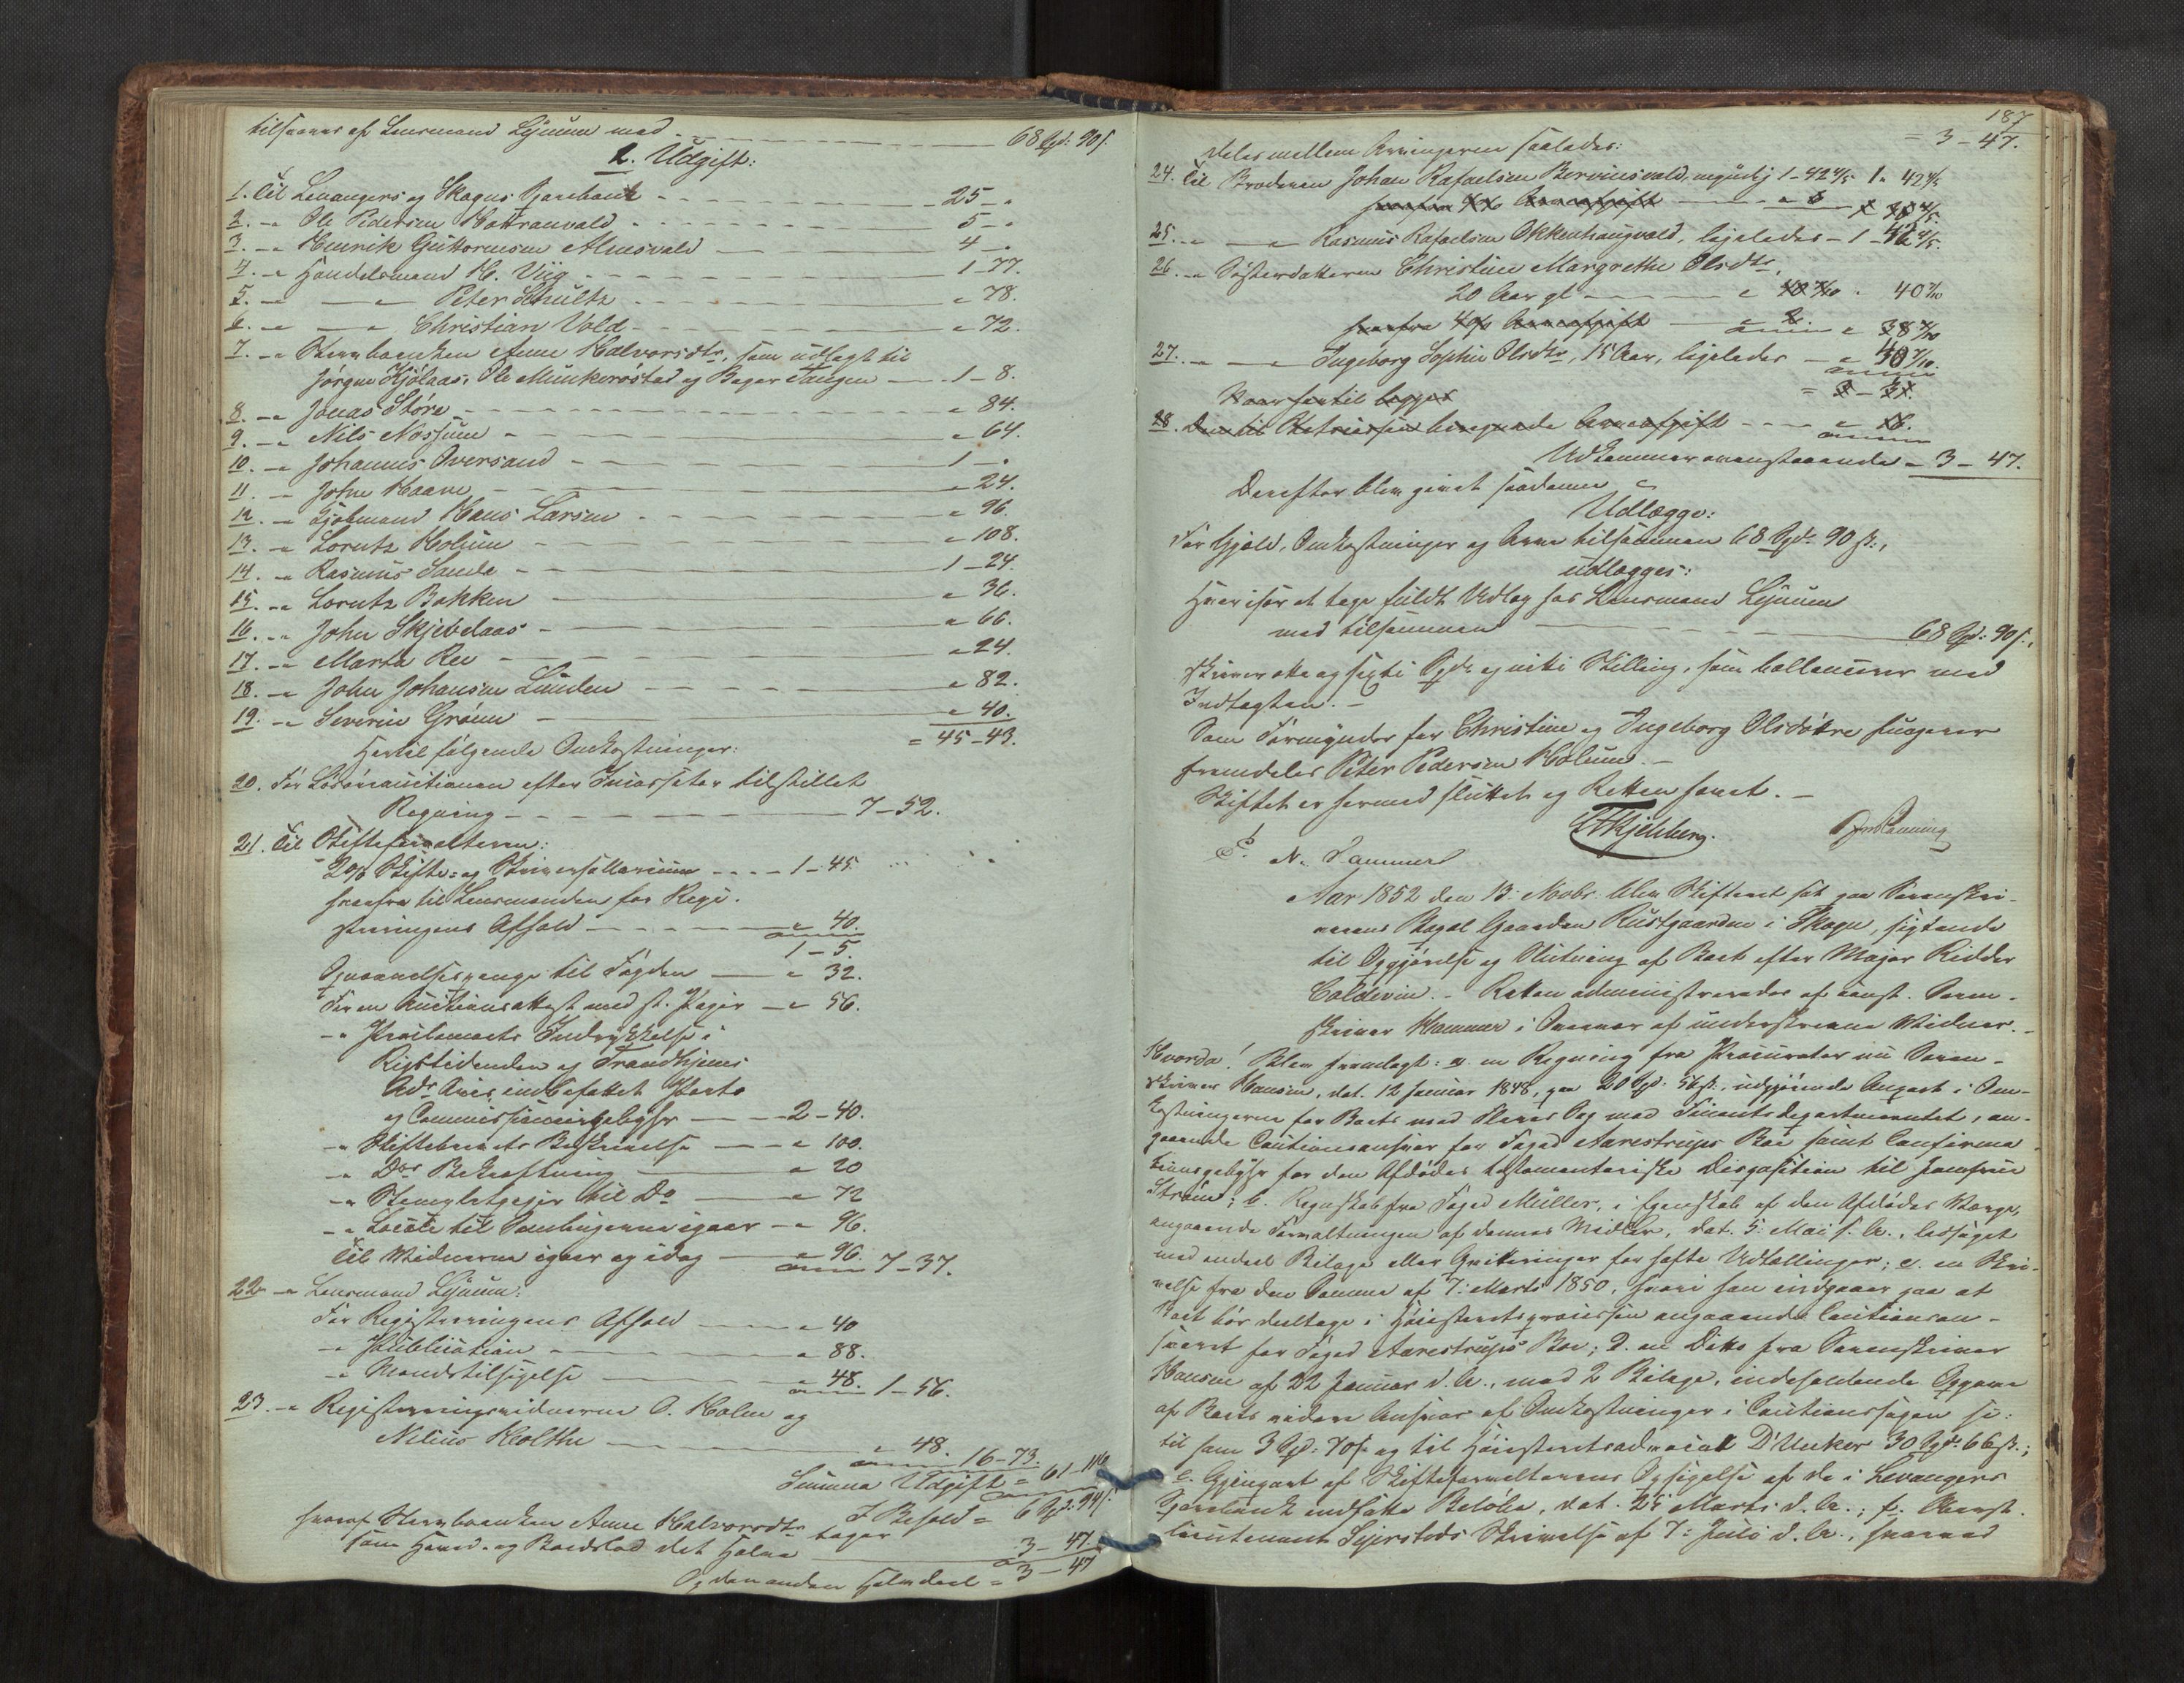 tilsvares af Lensmand Ljuum med - - - 68 Spd: 90 s.
2. Udgift:
1. Til Levangers og Skogns Sparebank - - - 25 - "
2. - " Ole Pedersen Hottranvald - - - 5 - "
3. - " Henrik Guttormsen Almsvald - 4 - "
4. - " Handelsmand H. Viig - - - 1 - 77.
5. - " - " Peter Schultz - - - " 78.
6. - " - " Christian Vold - - " 72.
7. - " Stervboenken Anne Halvorsdtr, som udlagt til
Jørgen Kjølaas, Ole Munkerøstad og Bager Tangen - 1 - 8.
8. - " Jonas Støre - - - " 84.
9. - " Nils Nossum - - - " 64.
10. - " Johannes Oversand - - 1 - "
11. - " John Haave - - - " 24.
12. - " Kjøbmand Hans Larsen - - - " 96.
13. - " Lorntz Holum - - - " 108.
14. - " Rasmus Sande - - - 1 - 24.
15. - " Lorntz Bakken - - - " 36.
16. - " John Skjebdaas - - - " 66.
17. - " Marta Ree - - - " 24.
18. - " John Johansen Linden - - - " 82.
19. - " Severin Grønn - - - " 40.
= 45 - 43.
Hertil følgende Omkostninger:
20. For Løsøreauctionen efter Incassator tilstillet
Regning - - - 7 - 52.
21. Til Skifteforvalteren:
2 % Skifte- og Skriversallarium - - - 1 - 45.
herfra til Lensmanden for Regi-
streringens Afhold - - - " 40.
1 - 5.
Opvartelsespenge til Fogden - " 32.
For en Auctionsattest med st. Papir - " 56.
- " Proclamaets Indrykkelse i
Rigstidenden og Trondhjems
Adr. Avis, indbefattet Porto
og Commissionærgebyhr - - 2 - 40.
- " Skiftebrevets Beskrivelse - - " 100.
- " Dos Bekræftning - " 20
- " Stempletpapir til Do - " 72
- " Locale til Samlingerne igaar - " 96.
Til Vidnerne igaar og idag - " 96. 7 - 37.
22. - " Lensmand Ljuum:
For Registreringens Afhold - - " 40
- " Publication - - " 88.
- " Mandstilsigelse - - " 48. 1 - 56.
23. - " Registreringsvidnerne O. Holm og
Nelius Kolthe - - " 48.
16 - 73.
Summa Udgift = 61 - 116
I Behold = 6 Spd: 94 s.
hvoraf Stervboenken Anne Halvorsdtr tager
som Hoved- og Boeslod det Halve - 3 - 47.
Og den anden Halvdeel = 3 - 47
187
= 3 - 47.
deles mellem Arvingerne saaledes:
24. Til Broderen Johan Rafaelsen Bervensvald, myndig 1 - 42 4/5 1 " 42 4/5
herfra 4 % Arveafgift - - " 6
25. - " - " Rasmus Rafaelsen Okkenhaugvald, ligeledes - 1 - 42 4/5.
26. - " Søsterdatteren Christine Margrethe Olsdtr,
20 Aar gl - - " 40 7/10 - 40 7/10
herfra 4 % Arveafgift - " 2. " 38 7/10
27. - " - " Ingeborg Sophie Olsdtr, 15 Aar, ligeledes - " 40 7/10.
hvorhentil lægges = 3 - 31.
28. Den til Statscassen beregnede Arveafgift - - - " 16.
Udkommer ovenstaaende - 3 - 47.
Derefter blev gjort saadanne
Udlægge:
For Gjæld, Omkostninger og Arv tilsammen 68 Spd. 90 s.,
udlægges:
Hver især at tage fuldt Udlæg hos Lensmand Ljuum
med tilsammen - - - 68 Spd: 90 s.,
skriver otte og sexti Spd. og nitti Skilling, som ballancerer med
Indtægten. -
Som Formynder for Christine og Ingeborg Olsdøttre fungerer
fremdeles Peter Pedersen Holum. -
Skiftet er hermed sluttet og Retten hævet. -
N. Hammer
Aar 1852 den 13. Novbr. blev Skifteret sat paa Sorenskri-
verens Bopæl Gaarden Rustgaarden i Skogn, sigtende
til Opgjørelse og Slutning af Boet efter Major Ridder
Coldevin. - Retten administreredes af const. Soren-
skriver Hammer i Overvær af underskrevne Vidner. -
Hvorda! Blev fremlagt: a. en Regning fra Procurator nu Soren-
skriver Hansen, dat. 12 Januar 1848, paa 20 Spd: 56 s., udgjørende Anpart i Om-
kostningerne for Boets med Fleres Sag mod Finantsdepartementet, an-
gaaende Cautionsansvar for Foged Aarestrups Boe samt Confirma-
tionsgebyhr for den Afdødes testamentariske Disposition til Jomfrue
Strøm; b. Regnskab fra Foged Müller, i Egenskab af den Afdødes Værge,
angaaende Forvaltningen af dennes Midler, dat. 5. Mai f. A., ledsaget
med endeel Bilage eller Qvitteringer for hafte Udtællinger; c. en Skri-
velse fra den Samme af 7. Marts 1850, hvori han indgaaer paa at
Boet bør deeltage i Høiesteretsprocessen angaaende Cautionsan-
svaret for Foged Aarestrups Boe; d. en Ditto fra Sorenskriver
Hansen af 22 Januar d. A., med 2 Bilage, indeholdende Opgave
af Boets videre Ansvar af Omkostninger i Cautionssagen sc:
til ham 3 Spd: 70 s og til Høiesteretsadvocat D'Unker 30 Spd. 66 s.;
e. Gjenpart af Skifteforvalterens Opsigelse af de i Levangers
Sparebank indsatte Beløbe, dat. 25 Marts d. A.; f. Const.
Lieutenant Sejersteds Skrivelse af 7. Juli d. A., hvorved